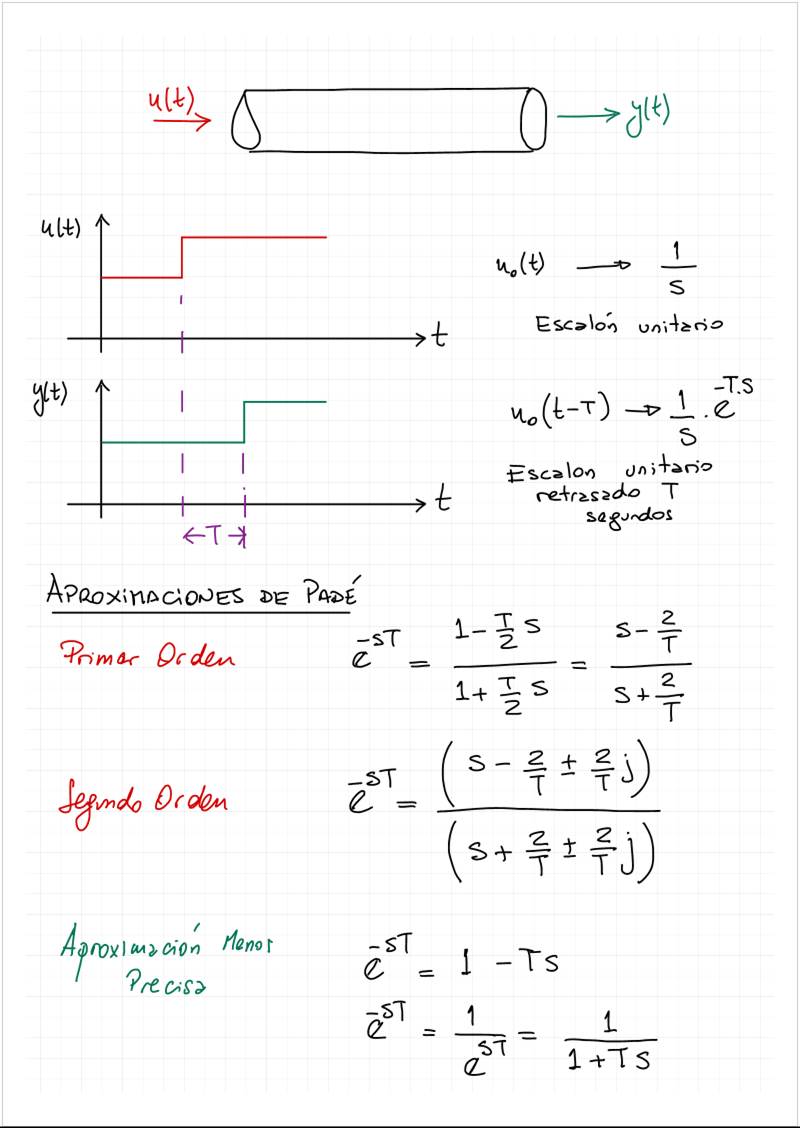 u(t)
y(t)
u(t)
t
u₀(t) → 1/s
Escalón unitario
y(t)
t
T
u₀(t-T) → 1/s . e^-T.s
Escalon unitario
retrasado T
segundos
APROXIMACIONES DE PADÉ
Primer Orden
e^-sT = (1 - T/2 s)/(1 + T/2 s) = (s - 2/T)/(s + 2/T)
Segundo Orden
e^-sT = (s - 2/T ± 2/T j)/(s + 2/T ± 2/T j)
Aproximación Menor
Precisa
e^-sT = 1 - Ts
e^-sT = 1/e^sT = 1/(1+Ts)